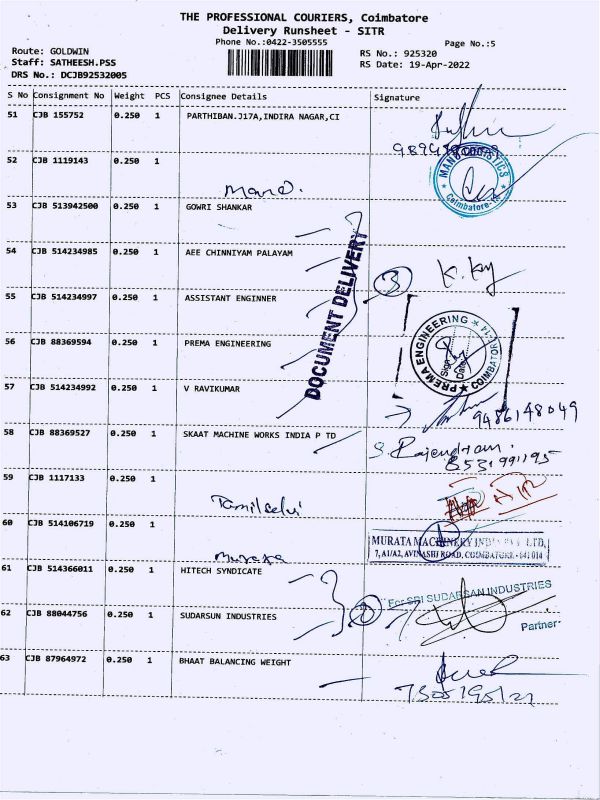 THE PROFESSIONAL COURIERS, Coimbatore
Delivery Runsheet - SITR
Phone No.:0422-3505555
Page No.:5
Route: GOLDWIN
RS No.: 925320
Staff: SATHEESH.PSS
RS Date: 19-Apr-2022
DRS No.: DCJB92532005
S No Consignment No Weight PCS Consignee Details Signature
51 CJB 155752 0.250 1 PARTHIBAN.J17A,INDIRA NAGAR,CI
52 CJB 1119143 0.250 1
MANO LOGISTICS
Coimbatore-14
Mano.
53 CJB 513942500 0.250 1 GOWRI SHANKAR
54 CJB 514234985 0.250 1 AEE CHINNIYAM PALAYAM
DOCUMENT DELIVERY
3
55 CJB 514234997 0.250 1 ASSISTANT ENGINNER
56 CJB 88369594 0.250 1 PREMA ENGINEERING
PREMA ENGINEERING
COIMBATORE-14
Sign
Date
57 CJB 514234992 0.250 1 V RAVIKUMAR
9486148049
58 CJB 88369527 0.250 1 SKAAT MACHINE WORKS INDIA P TD
S. Rajendran.
59 CJB 1117133 0.250 1
Tamilselvi
60 CJB 514106719 0.250 1
MURATA MACHINERY INDIA PVT. LTD,
7, A1/A2, AVINASHI ROAD, COIMBATORE - 641 014
Murata
61 CJB 514366011 0.250 1 HITECH SYNDICATE
For SRI SUDARSAN INDUSTRIES
62 CJB 88044756 0.250 1 SUDARSUN INDUSTRIES
2
Partner
63 CJB 87964972 0.250 1 BHAAT BALANCING WEIGHT